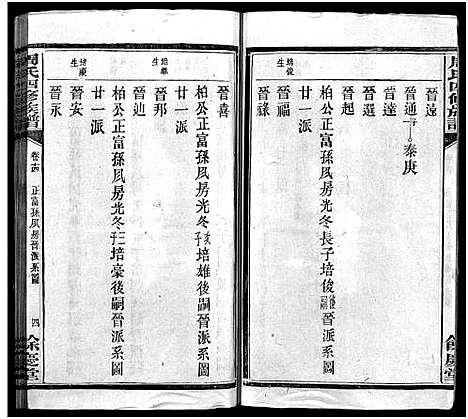 周氏四修族譜
晉遠
晉通 子一 秦庚
晉選
晉達
晉起
柏公正富孫凤房光冬長子培俊後嗣晉派系圖
廿一派
培俊生
晉福
晉祿
餘慶堂
周氏四修族譜
卷十四
正富孫凤房晉派系圖
四
餘慶堂
培雄生
晉喜
柏公正富孫凤房光冬次子培雄後嗣晉派系圖
廿一派
晉邦
晉迪
柏公正富孫凤房光冬三子培豪後嗣晉派系圖
廿一派
培豪生
晉安
晉永